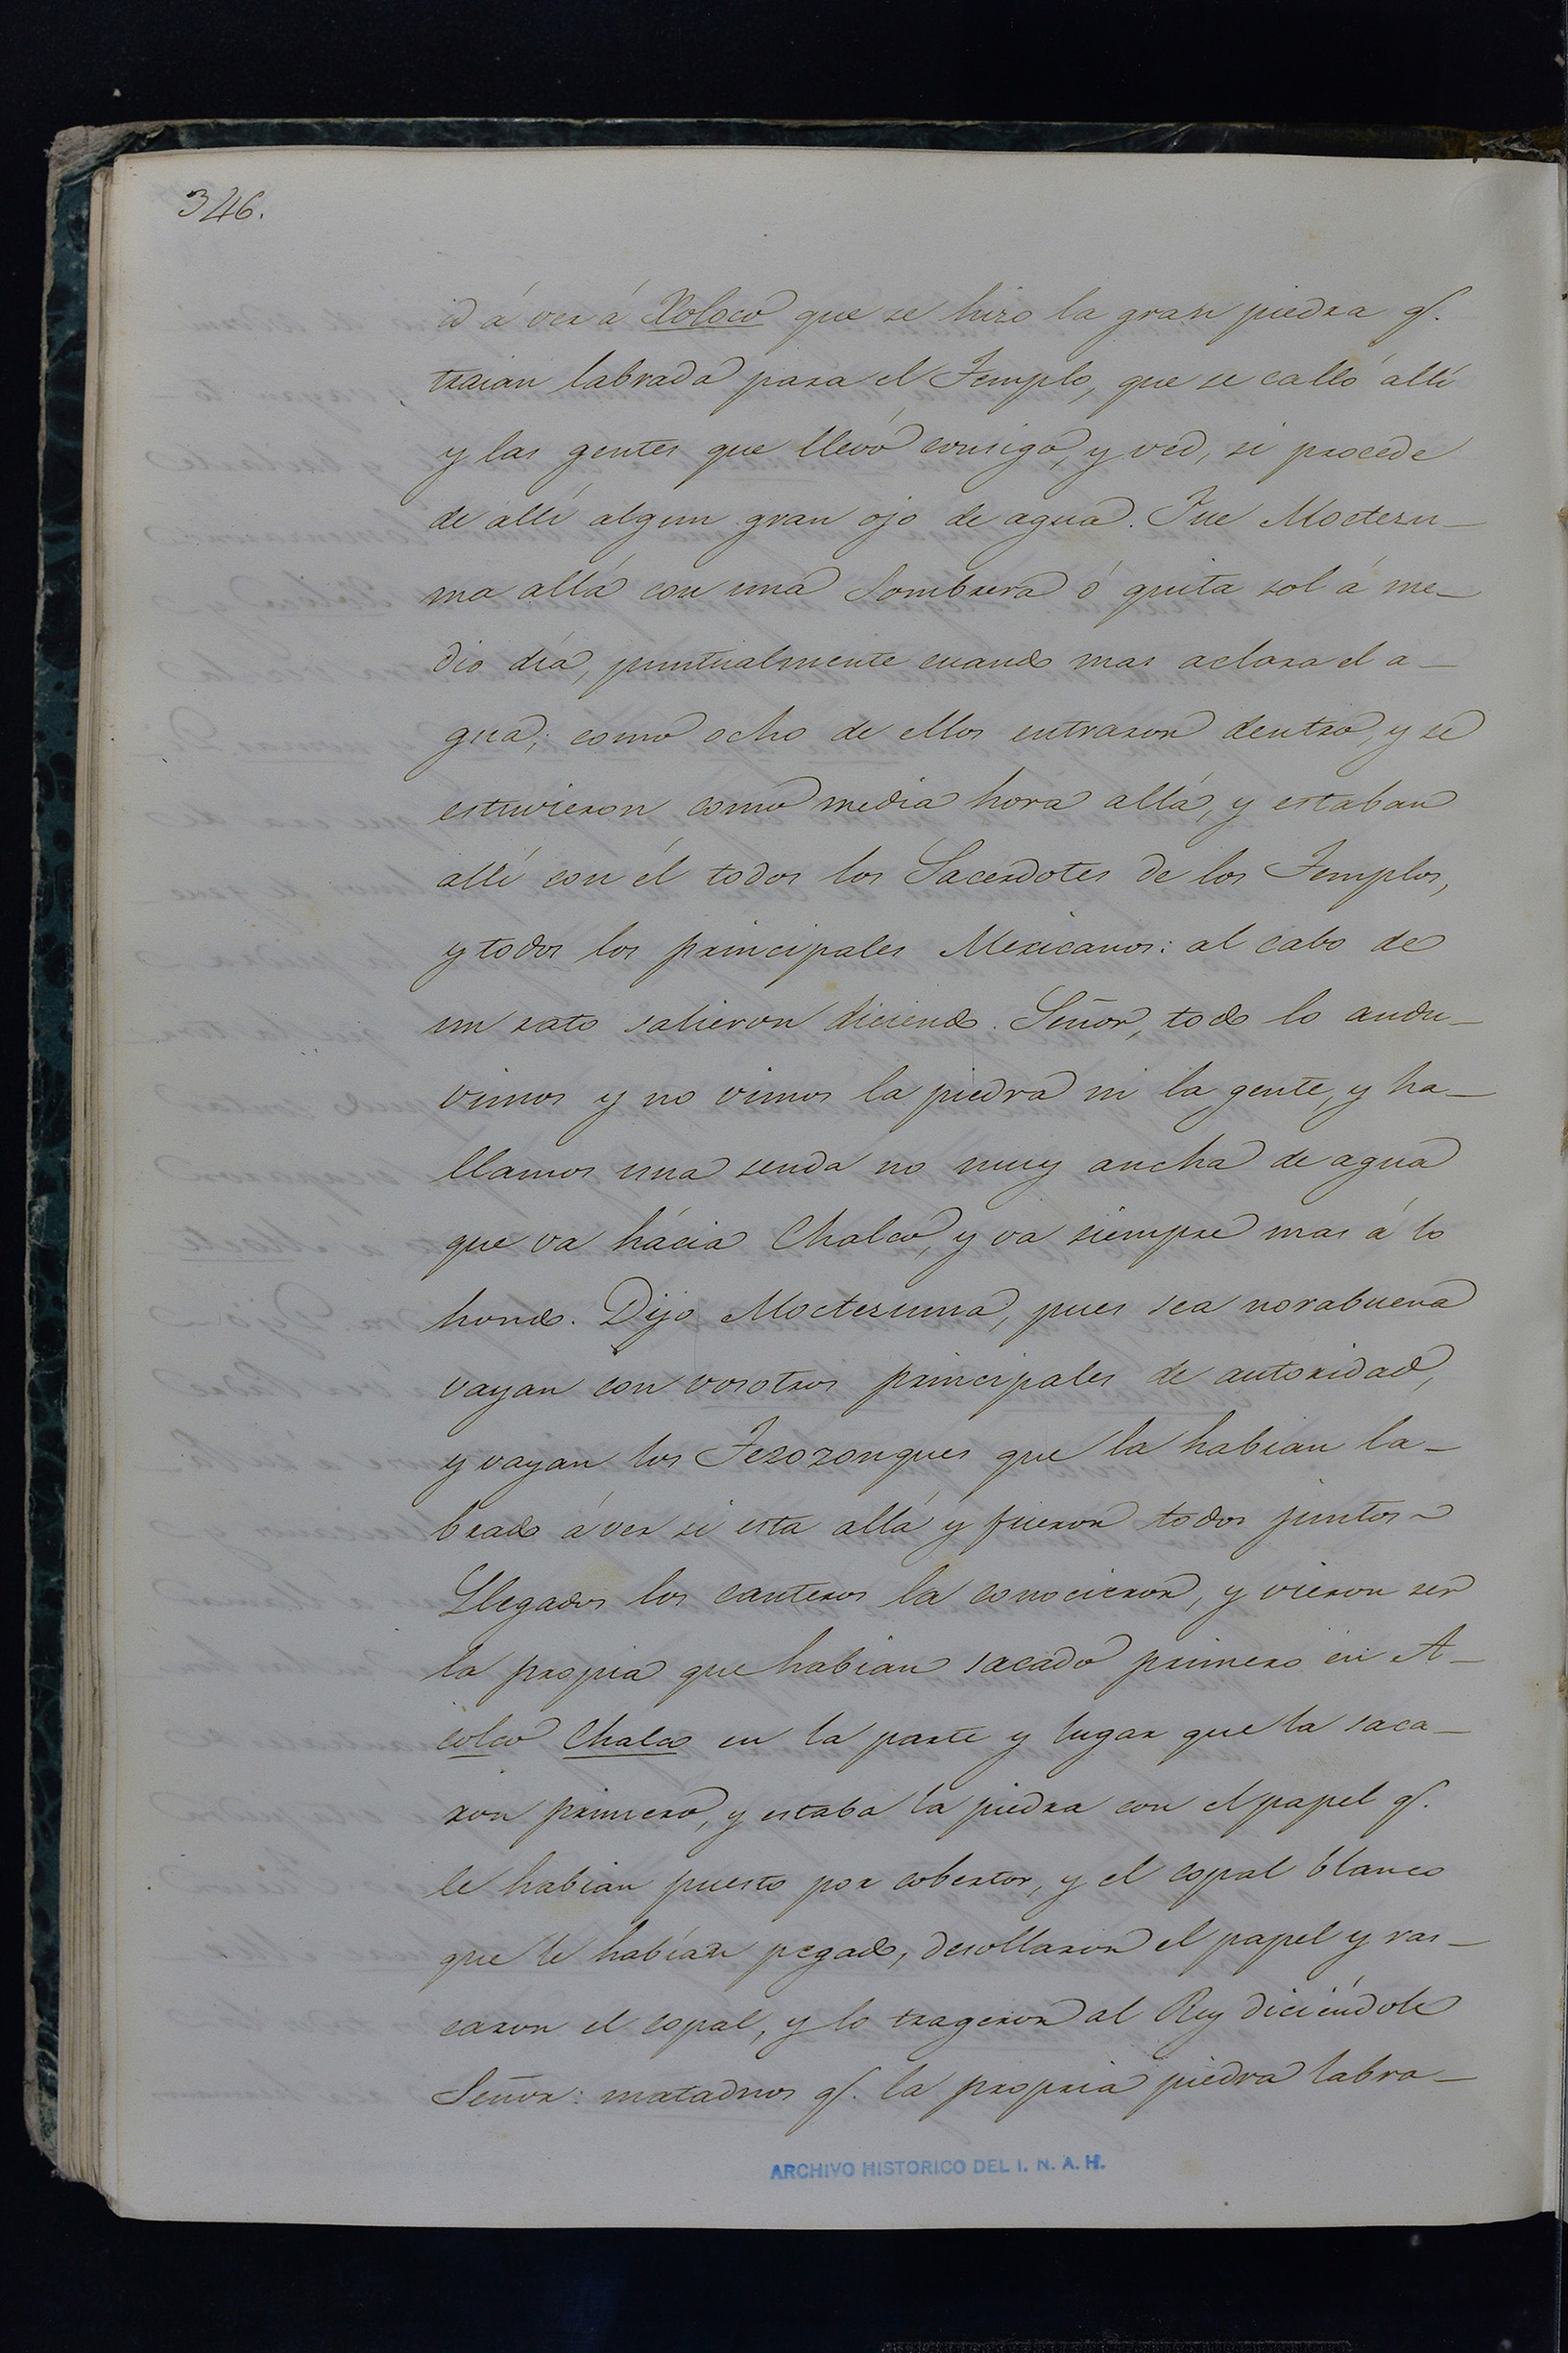 346.
id á ver á Xoloco que se hizo la gran piedra q.
traian labrada para el Templo, que se calló allí
y las gentes que llevó consigo, y ved, si procede
de allí algun gran ojo de agua. Fue Moctezu-
ma allá con una Sombrera ó quita sol á me-
dio día, puntualmente cuando mas aclara el a-
gua; como ocho de ellos entraron dentro, y se
estuvieron como media hora allá, y estaban
allí con él todos los Sacerdotes de los Templos,
y todos los principales Mexicanos: al cabo de
un rato salieron diciendo. Señor, todo lo andu-
vimos y no vimos la piedra ni la gente, y ha-
llamos una senda no muy ancha de agua
que va hácia Chalco, y va siempre mas á lo
hondo. Dijo Moctezuma, pues sea norabuena
vayan con vosotros principales de autoridad,
y vayan los Tezozonques que la habian la-
brado á ver si esta allá y fueron todos juntos
Llegados los canteros la conocieron, y vieron ser
la propia que habian sacado primero en A-
colco Chalco en la parte y lugar que la saca-
ron primero, y estaba la piedra con el papel q.
le habian puesto por cobertor, y el copal blanco
que le habían pegado, desollaron el papel y ras-
caron el copal, y lo trageron al Rey diciéndole
Señor: matadnos q. la propria piedra labra-
ARCHIVO HISTORICO DEL I. N. A. H.